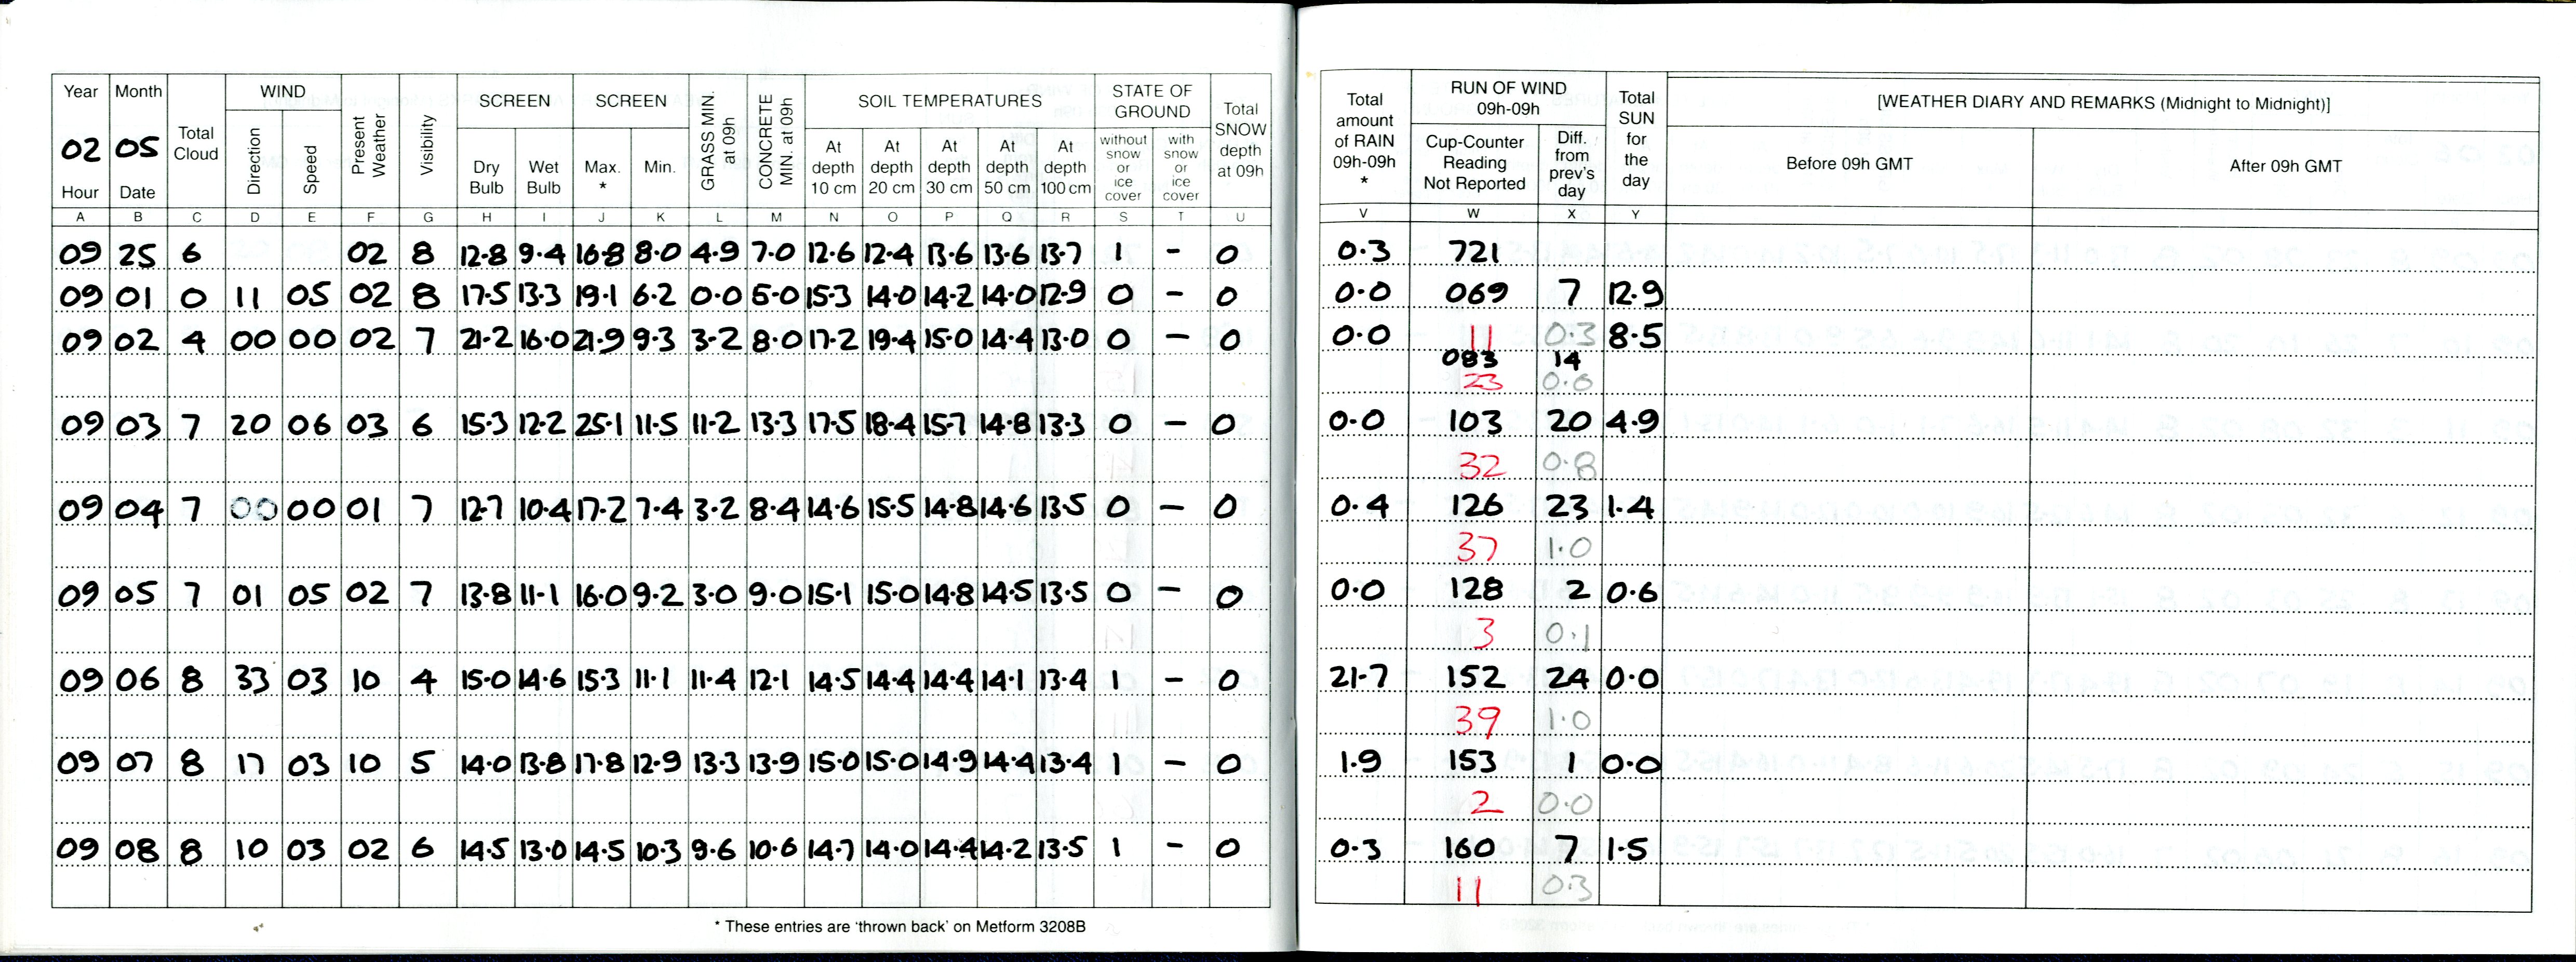 Year Month Total Cloud WIND Present Weather Visibility SCREEN SCREEN GRASS MIN. at 09h CONCRETE MIN. at 09h SOIL TEMPERATURES STATE OF GROUND Total SNOW depth at 09h
02 05 Direction Speed Dry Bulb Wet Bulb Max. * Min. At depth 10 cm At depth 20 cm At depth 30 cm At depth 50 cm At depth 100 cm without snow or ice cover with snow or ice cover
Hour Date
A B C D E F G H I J K L M N O P Q R S T U
09 25 6 02 8 12.8 9.4 16.8 8.0 4.9 7.0 12.6 12.4 13.6 13.6 13.7 1 - 0
09 01 0 11 05 02 8 17.5 13.3 19.1 6.2 0.0 5.0 15.3 14.0 14.2 14.0 12.9 0 - 0
09 02 4 00 00 02 7 21.2 16.0 21.9 9.3 3.2 8.0 17.2 19.4 15.0 14.4 13.0 0 - 0
09 03 7 20 06 03 6 15.3 12.2 25.1 11.5 11.2 13.3 17.5 18.4 15.7 14.8 13.3 0 - 0
09 04 7 00 00 01 7 12.7 10.4 17.2 7.4 3.2 8.4 14.6 15.5 14.8 14.6 13.5 0 - 0
09 05 7 01 05 02 7 13.8 11.1 16.0 9.2 3.0 9.0 15.1 15.0 14.8 14.5 13.5 0 - 0
09 06 8 33 03 10 4 15.0 14.6 15.3 11.1 11.4 12.1 14.5 14.4 14.4 14.1 13.4 1 - 0
09 07 8 17 03 10 5 14.0 13.8 17.8 12.9 13.3 13.9 15.0 15.0 14.9 14.4 13.4 1 - 0
09 08 8 10 03 02 6 14.5 13.0 14.5 10.3 9.6 10.6 14.7 14.0 14.4 14.2 13.5 1 - 0
* These entries are 'thrown back' on Metform 3208B
Total amount of RAIN 09h-09h * RUN OF WIND 09h-09h Total SUN for the day [WEATHER DIARY AND REMARKS (Midnight to Midnight)]
Cup-Counter Reading Not Reported Diff. from prev's day Before 09h GMT After 09h GMT
V W X Y
0.3 721
0.0 069 7 12.9
0.0 11 0.3 8.5
083 14
23 0.6
0.0 103 20 4.9
32 0.8
0.4 126 23 1.4
37 1.0
0.0 128 2 0.6
3 0.1
21.7 152 24 0.0
39 1.0
1.9 153 1 0.0
2 0.0
0.3 160 7 1.5
11 0.3